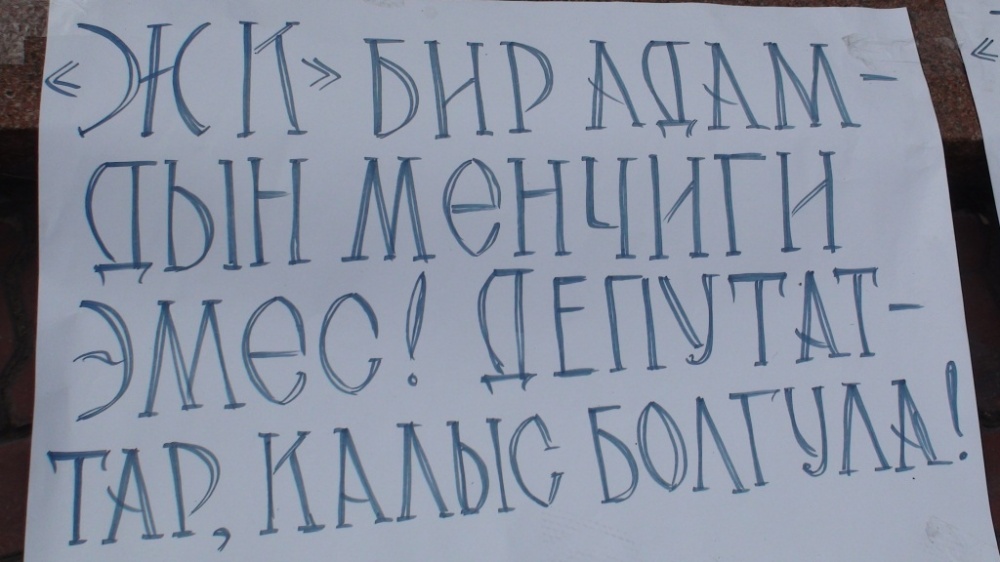 «ЖК» БИР АДАМ-
ДЫН МЕНЧИГИ
ЭМЕС! ДЕПУТАТ-
ТАР, КАЛЫС БОЛГУЛА!